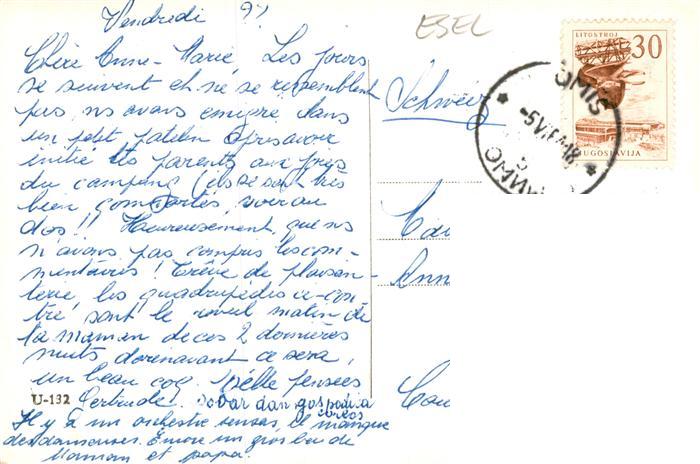 Vendredi
Chère Anne-Marie, Les jours
se suivent et ne se ressemblent
pas, ns avons émigré dans
un petit patelin après avoir
initié les parents aux joies
du camping (ils se sont très
bien comportés,
dos!! Heureusement que ns
n'avons pas compris les com-
mentaires! Trêve de plaisan-
terie, les quadrupèdes ci-con-
tre sont le réveil matin de
la maman de ces 2 dernières
nuits dorénavant ce sera
un beau coq. Belle pensées
Gertrude. Dobar dan gospodia
Il y a un orchestre sensas, il manque
des danseuses. Encore un gros bec de
Maman et papa.
U-132
ESEL
Schweiz
Ann
LITOSTROJ
30
JUGOSLAVIJA
OMIŠ
ОМИШ